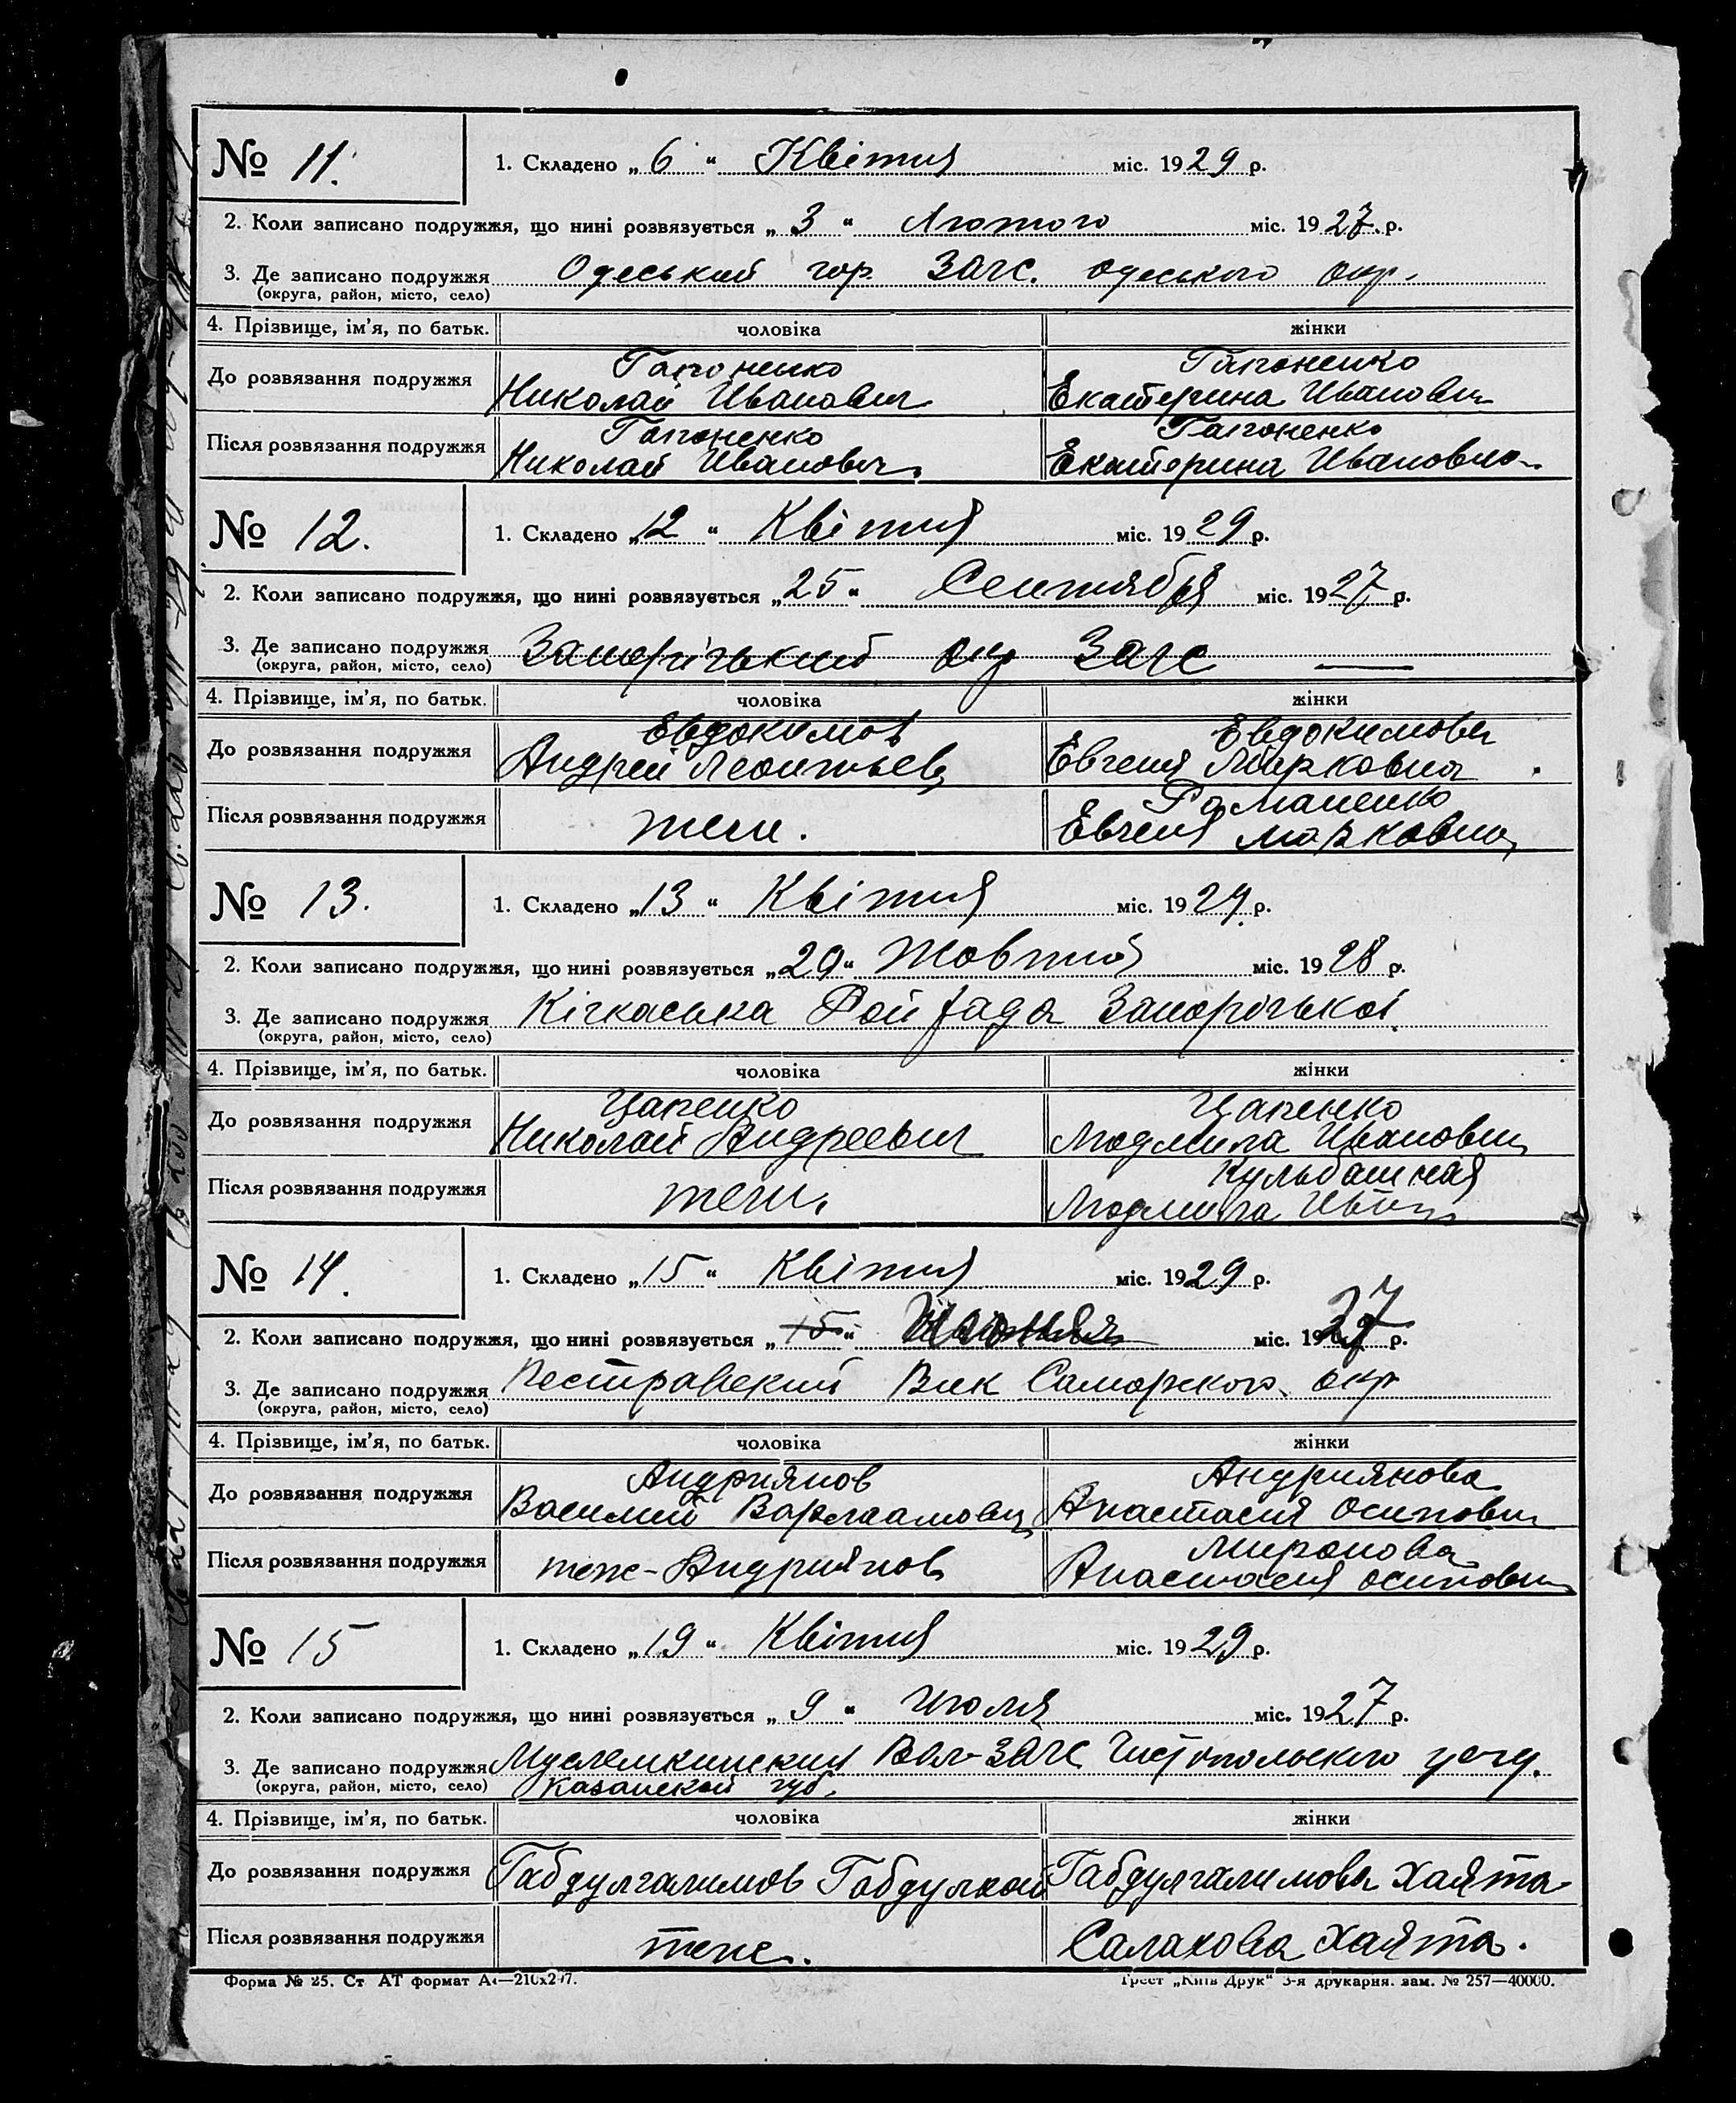 № 11. 1. Складено „6“ Квітня міс. 1929 р.
2. Коли записано подружжя, що нині розвязується „3“ Лютого міс. 1927 р.
3. Де записано подружжя Одеський гор. ЗАГС. одеського окр.
(округа, район, місто, село)
4. Прізвище, ім’я, по батьк. чоловіка жінки
До розвязання подружжя Гапоненко Николай Иванович Гапоненко Екатерина Ивановн
Після розвязання подружжя Гапоненко Николай Иванович Гапоненко Екатерина Ивановна
№ 12. 1. Складено „12“ Квітня міс. 1929 р.
2. Коли записано подружжя, що нині розвязується „25“ Сентября міс. 1927 р.
3. Де записано подружжя Запорізький окр Загс
(округа, район, місто, село)
4. Прізвище, ім’я, по батьк. чоловіка жінки
До розвязання подружжя Евдокимов Андрей Леонтьев Евдокимова Евгения Марковна
Після розвязання подружжя теж. Романенко Евгения Марковна
№ 13. 1. Складено „13“ Квітня міс. 1929 р.
2. Коли записано подружжя, що нині розвязується „29“ Жовтня міс. 1928 р.
3. Де записано подружжя Кічкаська Рай рада Запорізької
(округа, район, місто, село)
4. Прізвище, ім’я, по батьк. чоловіка жінки
До розвязання подружжя Цапенко Николай Андреевич Цапенко Людмила Ивановн
Після розвязання подружжя теж. Кульбашная Людмила
№ 14. 1. Складено „15“ Квітня міс. 1929 р.
2. Коли записано подружжя, що нині розвязується „15“ міс. 1927 р.
3. Де записано подружжя Пестравский Вик Самарского окр
(округа, район, місто, село)
4. Прізвище, ім’я, по батьк. чоловіка жінки
До розвязання подружжя Андриянов Василий Варлаамович Андриянова Анастасия Осиповн
Після розвязання подружжя теж-Андриянов Миронова Анастасия Осиповн
№ 15 1. Складено „19“ Квітня міс. 1929 р.
2. Коли записано подружжя, що нині розвязується „9“ Июля міс. 1927 р.
3. Де записано подружжя Муслемкинский Вол-ЗАГС Чистопольского уезд.
(округа, район, місто, село) Казанской губ.
4. Прізвище, ім’я, по батьк. чоловіка жінки
До розвязання подружжя Габдулгалимов Габдулхай Габдулгалимова Хаята
Після розвязання подружжя теж. Салахова Хаята.
Форма № 25. Ст АТ формат А4—210x297. Трест „Київ Друк“ 3-я друкарня. зам. № 257—40000.